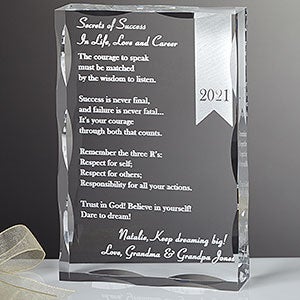 Secrets of Success
In Life, Love and Career
The courage to speak
must be matched
by the wisdom to listen.
2021
Success is never final,
and failure is never fatal...
It's your courage
through both that counts.
Remember the three R's:
Respect for self;
Respect for others;
Responsibility for all your actions.
Trust in God! Believe in yourself!
Dare to dream!
Natalie, Keep dreaming big!
Love, Grandma & Grandpa Jones